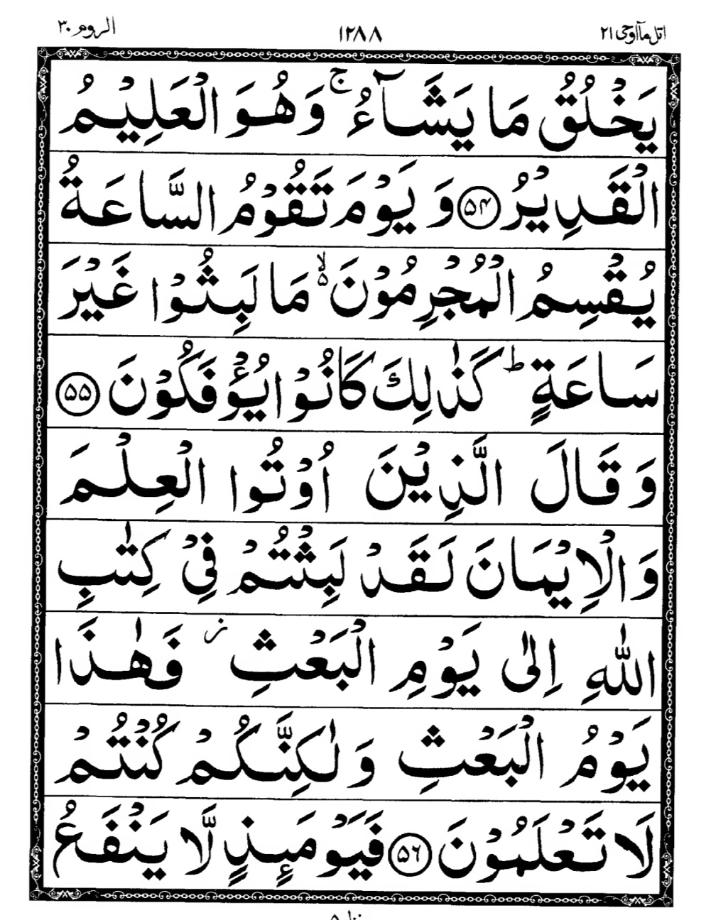 اتل مآ اوحی ۲۱ ۱۲۸۸ الروم ۳۰
يَخْلُقُ مَا يَشَآءُ ۚ وَهُوَ الْعَلِيْمُ
الْقَدِيْرُ ۵۴ وَ يَوْمَ تَقُوْمُ السَّاعَةُ
يُقْسِمُ الْمُجْرِمُوْنَ ۙ۬ مَا لَبِثُوْا غَيْرَ
سَاعَةٍ ؕ كَذٰلِكَ كَانُوْا يُؤْفَكُوْنَ ۵۵
وَ قَالَ الَّذِيْنَ اُوْتُوا الْعِلْمَ
وَالْاِيْمَانَ لَقَدْ لَبِثْتُمْ فِيْ كِتٰبِ
اللّٰهِ اِلٰى يَوْمِ الْبَعْثِ ؗ فَهٰذَا
يَوْمُ الْبَعْثِ وَ لٰكِنَّكُمْ كُنْتُمْ
لَا تَعْلَمُوْنَ ۵۶ فَيَوْمَئِذٍ لَّا يَنْفَعُ